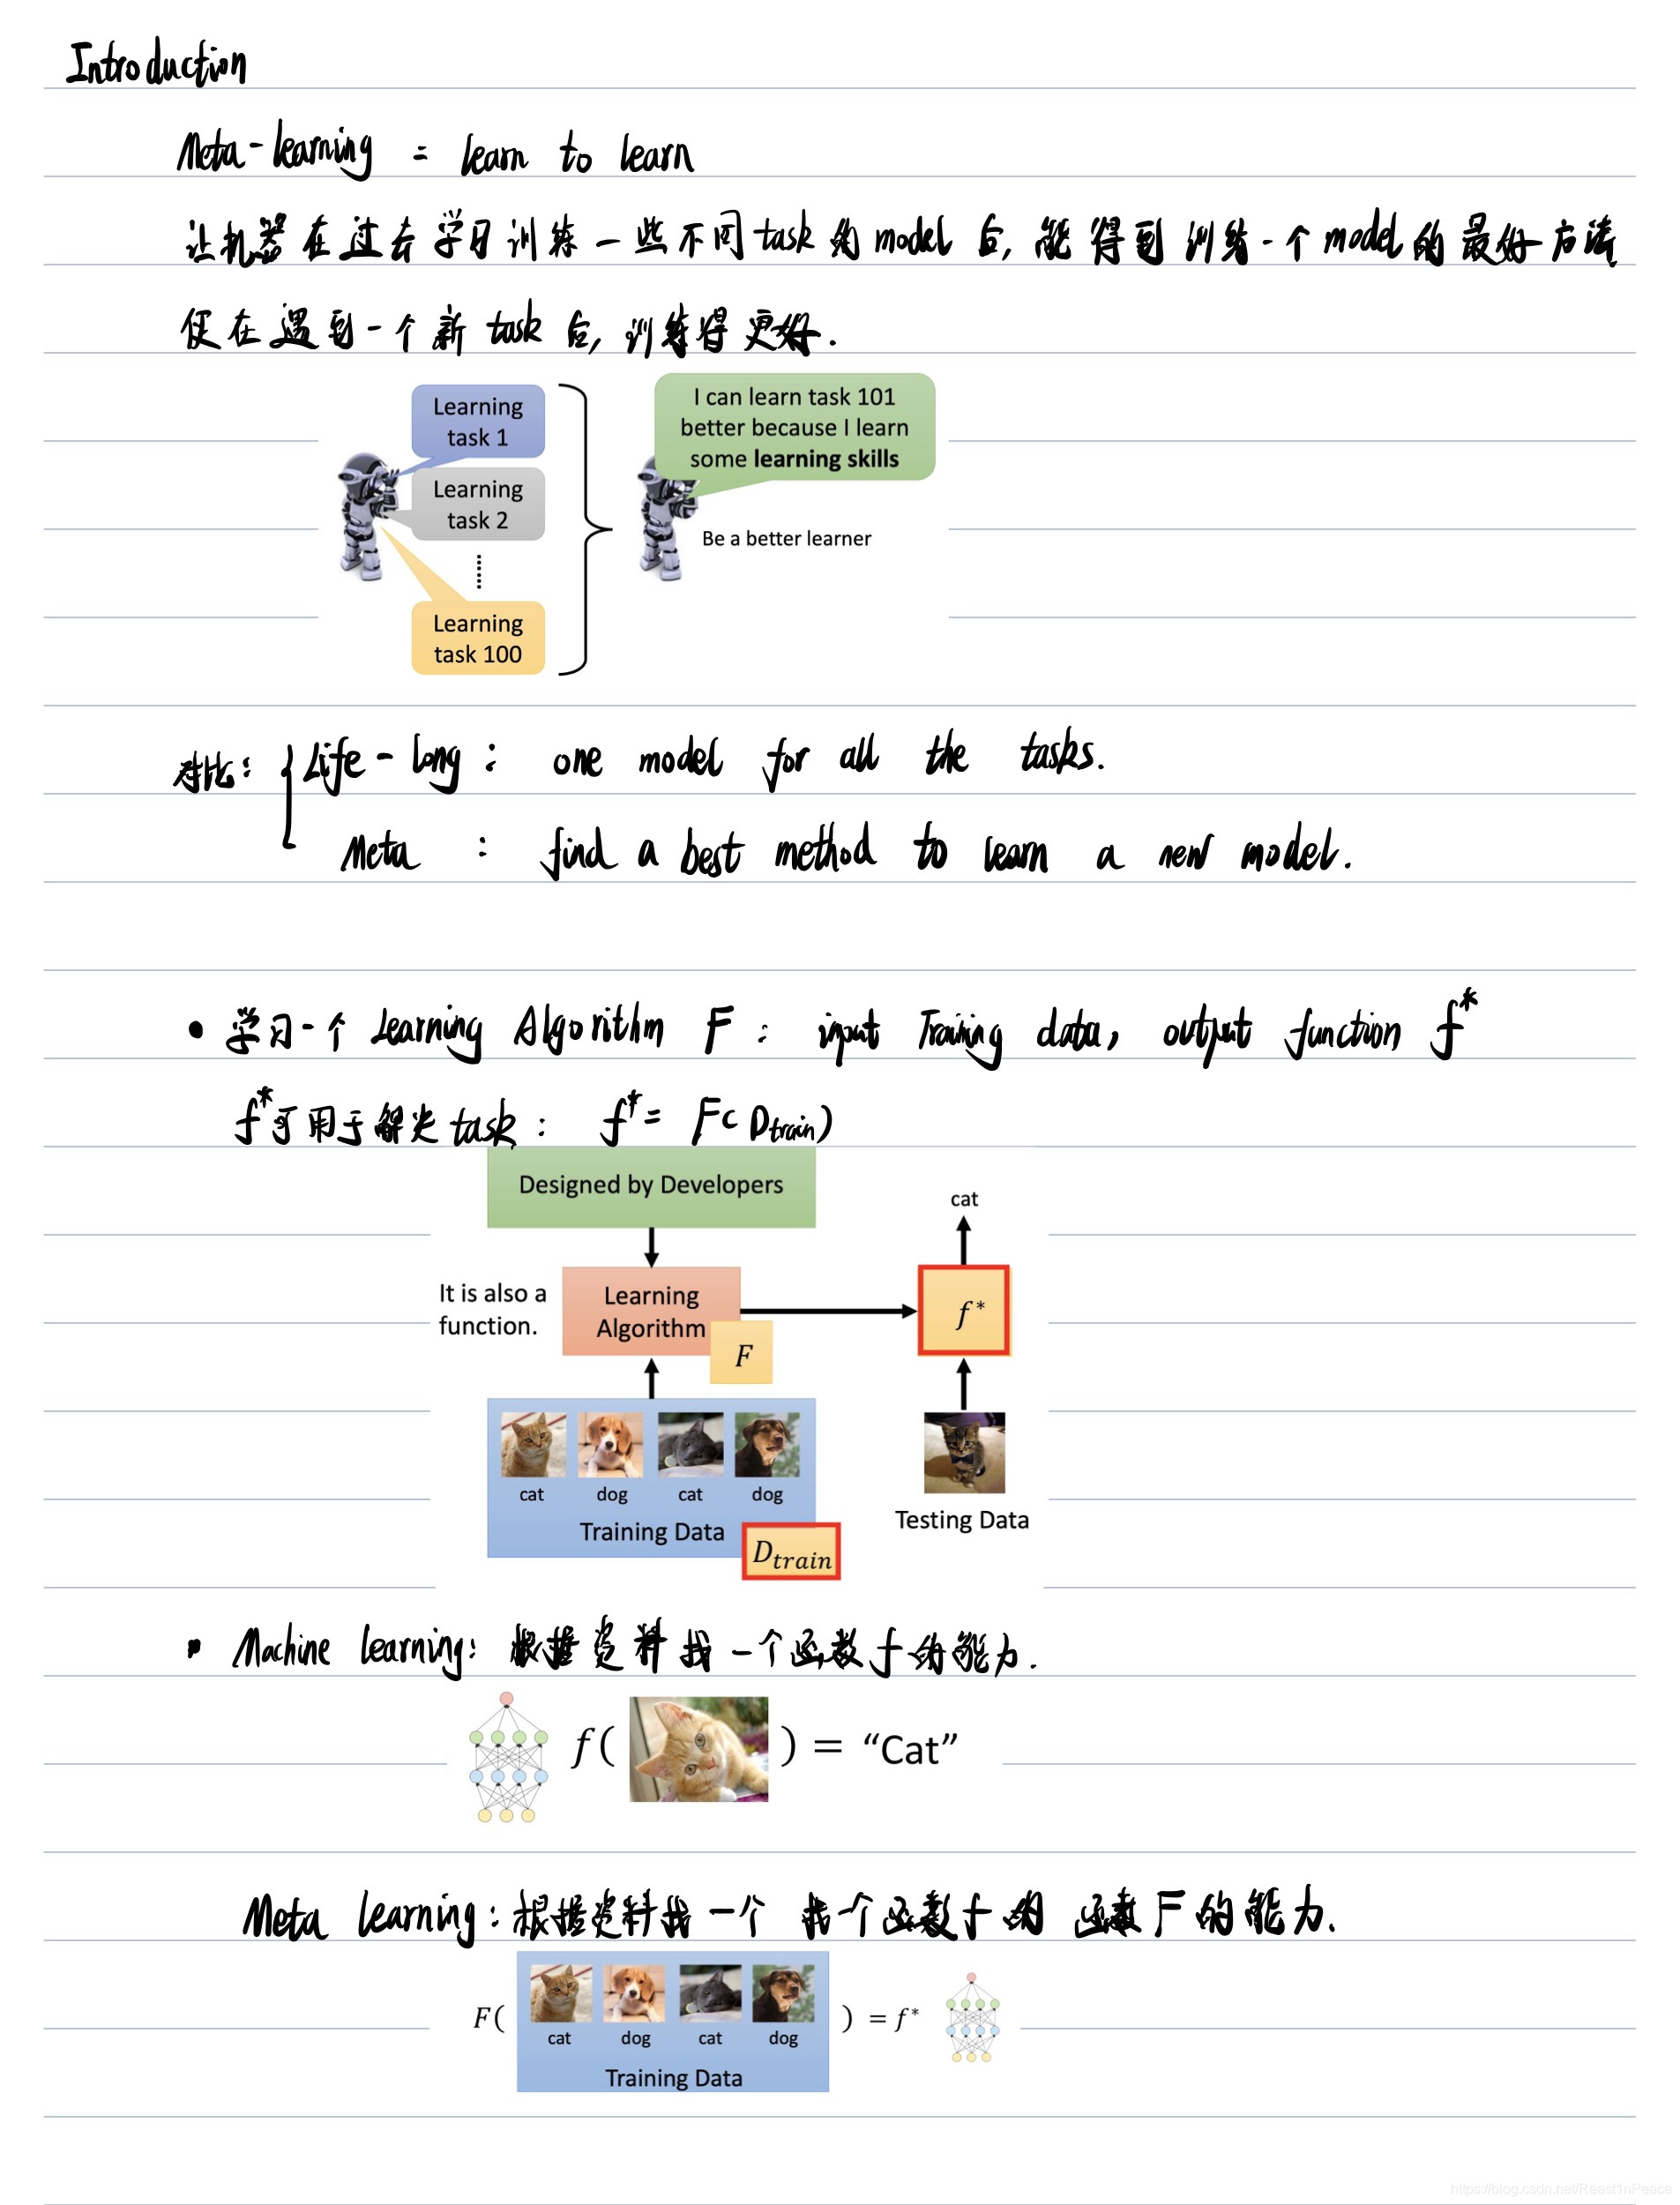 Introduction
Meta-learning = learn to learn
让机器在过去学习训练一些不同task的model后,能得到训练一个model的最好方法
使在遇到一个新task后,训练得更好.
Learning
task 1
Learning
task 2
Learning
task 100
I can learn task 101
better because I learn
some learning skills
Be a better learner
对比: Life-long: one model for all the tasks.
Meta : find a best method to learn a new model.
• 学习一个 Learning Algorithm F: input Training data, output function f*
f*可用于解决task: f* = F(Dtrain)
Designed by Developers
cat
It is also a
function.
Learning
Algorithm
F
f*
cat dog cat dog
Training Data
Dtrain
Testing Data
• Machine learning: 根据资料找一个函数f的能力.
f( ) = “Cat”
Meta learning: 根据资料找一个 找一个函数f的 函数F的能力.
F( ) = f*
cat dog cat dog
Training Data
https://blog.csdn.net/Reast1nPeace